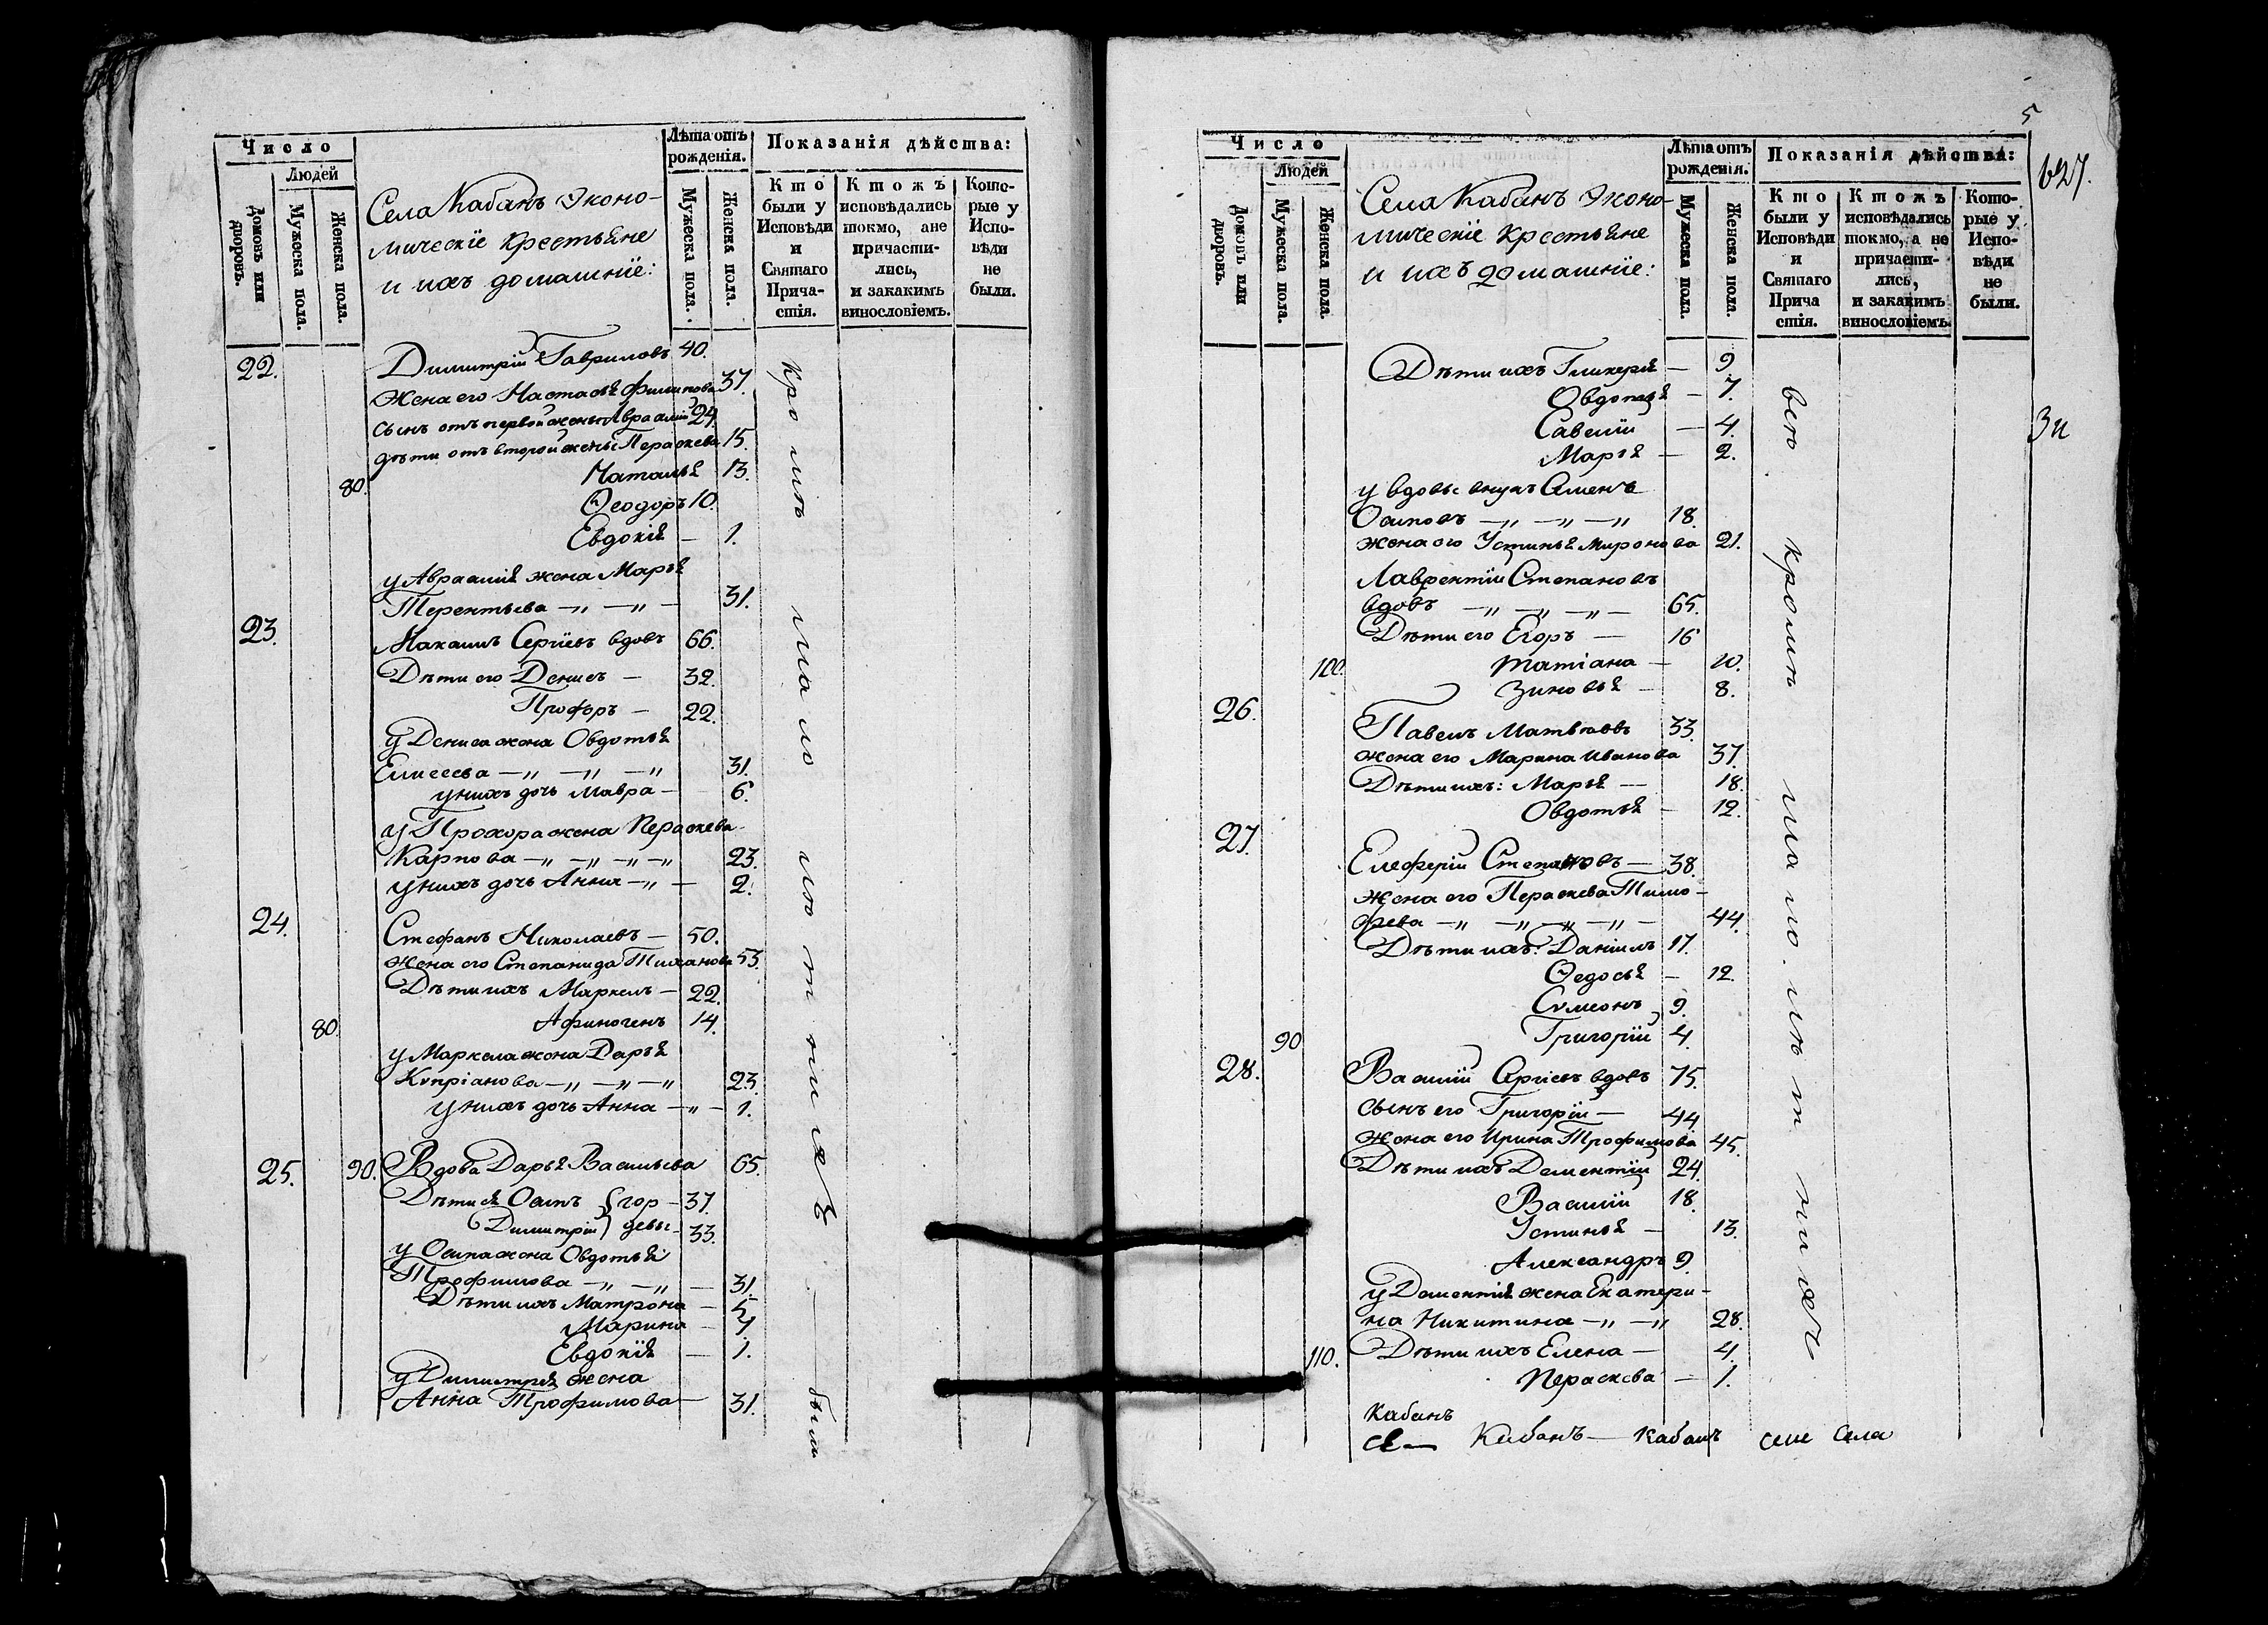 Число
Людей
Домовъ или дворовъ.
Мужеска пола.
Женска пола.
Села Кабанъ Эконо-
мическіе крестьяне
и ихъ домашніе:
Лѣта отъ рожденія.
Мужеска пола.
Женска пола.
Показанія дѣйства:
Кто были у Исповѣди и Святаго Прича-стія.
Ктожъ исповѣдались токмо, ане причасти-лись, и закакимъ винословіемъ.
Кото-рые у Испо-вѣди не были.
22. Димитрій Гавриловъ 40.
Жена его Настасья Филипова 37.
Сынъ отъ первой жены Авраамій 24.
дѣти отъ второй жены Пераскева 15.
80. Наталья 13.
Ѳеодоръ 10.
Евдокія — 1.
у Авраамія жена Марья
Терентьева —„ —„ — 31.
23. Максимъ Сергіевъ вдовъ 66.
Дѣти его Денисъ — 32.
Прохоръ — 22.
у Дениса жена Овдотья
Елисеева —„ —„ —„ 31.
у нихъ дочь Мавра — 6.
у Прохора жена Пераскева
Карпова —„ —„ —„ —„ 23.
у нихъ дочь Анна —„ — 2.
24. Стефанъ Николаевъ — 50.
Жена его Степанида Тиханова 53.
Дѣти ихъ Маркелъ — 22.
80. Афиногенъ 14.
у Маркела жена Дарья
Кѵпріанова —„ —„ —„ 23.
у нихъ дочь Анна —„ — 1.
25. 90. Вдова Дарья Васильева 65.
Дѣти ея Осипъ 37.
Димитрій 33.
у Осипа жена Овдотья
Трофимова —„ —„ — 31.
Дѣти ихъ Матрона — 5.
Марина —
Евдокія — 1.
у Димитрія жена
Анна Трофимова — 31.
кромѣ мало лѣтнихъ — были
5
627.
Число
Людей
Домовъ или дворовъ.
Мужеска пола.
Женска пола.
Села Кабанъ Эконо-
мическіе крестьяне
и ихъ домашніе:
Лѣта отъ рожденія.
Мужеска пола.
Женска пола.
Показанія дѣйства:
Кто были у Исповѣди и Святаго Прича стія.
Ктожъ исповѣдались токмо, а не причасти-лись, и закакимъ винословіемъ.
Кото-рые у Испо-вѣди не были.
Дѣти ихъ Гликерія — 9.
Овдотья — 7.
Савелій — 4.
Марья — 2.
у вдовы внукъ Семенъ
Осиповъ —„ —„ —„ 18.
жена его Устинья Миронова 21.
Лаврентій Степановъ
вдовъ —„ —„ —„ — 65.
Дѣти его Егоръ — 16
100. Татіана — 10.
Зиновья — 8.
26. Павелъ Матвѣевъ 33.
жена его Марина Иванова 37.
Дѣти ихъ: Марья — 18.
Овдотья — 12.
27. Елеферій Степановъ — 38.
жена его Пераскева Тимо-
феева —„ —„ —„ —„ — 44.
Дѣти ихъ: Даніилъ 17.
Ѳедосья — 12.
Сѵмеонъ 9.
90 Григорій 4.
28. Василій Сергіевъ вдовъ 75.
Сынъ его Григорій — 44.
Жена его Ирина Трофимова 45.
Дѣти ихъ Дементій 24.
Василій 18.
Устинья — 13.
Александръ 9.
у Дементія жена Екатери-
на Никитина —„ —„ 28.
110. Дѣти ихъ Елена — 4.
Пераскева — 1.
Кабанъ
Кабанъ — Кабанъ селе Села
кромѣ мало лѣтнихъ